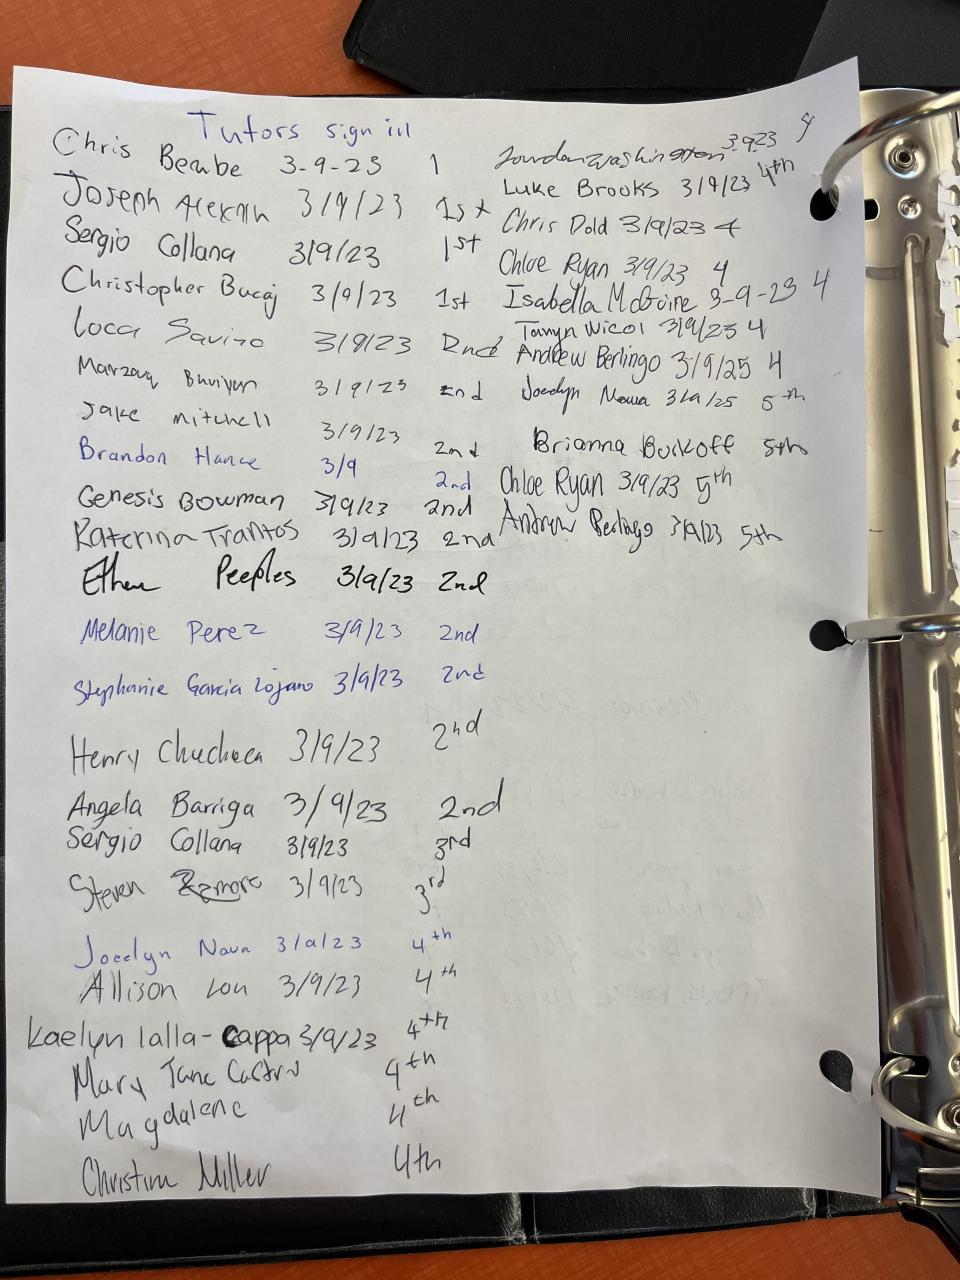 Tutors sign in
Chris Beabe 3-9-23 1
Joseph 3/9/23 1st
Sergio Collana 3/9/23 1st
Christopher Bucaj 3/9/23 1st
Luca Savino 3/9/23 2nd
Marzouq Bhuiyan 3/9/23 2nd
Jake Mitchell 3/9/23 2nd
Brandon Hance 3/9 2nd
Genesis Bowman 3/9/23 2nd
Katerina Trantos 3/9/23 2nd
Ethan Peeples 3/9/23 2nd
Melanie Perez 3/9/23 2nd
Stephanie Garcia Lojano 3/9/23 2nd
Henry Chuchuca 3/9/23 2nd
Angela Barriga 3/9/23 2nd
Sergio Collana 3/9/23 3rd
Steven 3/9/23 3rd
Jocelyn Nava 3/9/23 4th
Allison Lou 3/9/23 4th
Kaelyn Lalla-Cappa 3/9/23 4th
Mary Jane Castro 4th
Magdalene 4th
Christina Miller 4th
Jourdan Washington 3.9.23
Luke Brooks 3/9/23 4th
Chris Dold 3/9/23 4
Chloe Ryan 3/9/23 4
Isabella McGuire 3-9-23 4
Tamyn Nicol 3/9/23 4
Andrew Berlingo 3/9/25 4
Jocelyn Nava 3/9/25 5th
Brianna Burkoff 5th
Chloe Ryan 3/9/23 5th
Andrew Berlingo 3/9/23 5th